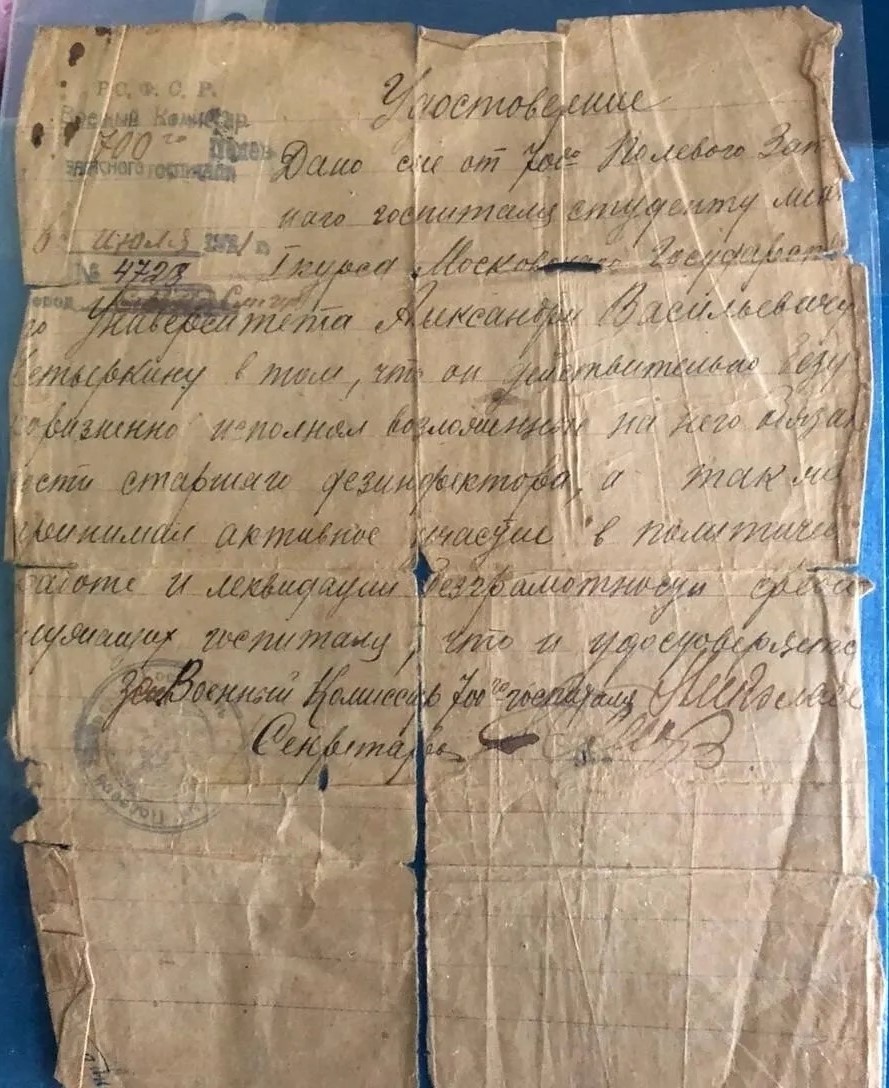 Р. С. Ф. С. Р.
Военый Комиссар
700го Полев
запасного госпиталя
6 июля 1921 г.
№ 4728
город
Удостоверение
Дано сие от 700го Полевого Зап
ного госпиталя студенту мед
I курса Московскаго Государстве
го Университета Александру Васильевичу
Ветыркину в том, что он действительно безу
коризненно исполнял возложенные на него обязан
ности старшаго дезинфектора, а так же
принимал активное участие в политичес
работе и леквидации безграмотности среди
служащих госпиталя, что и удостоверяется
зам Военный Комиссар 700го госпиталя
Секретарь